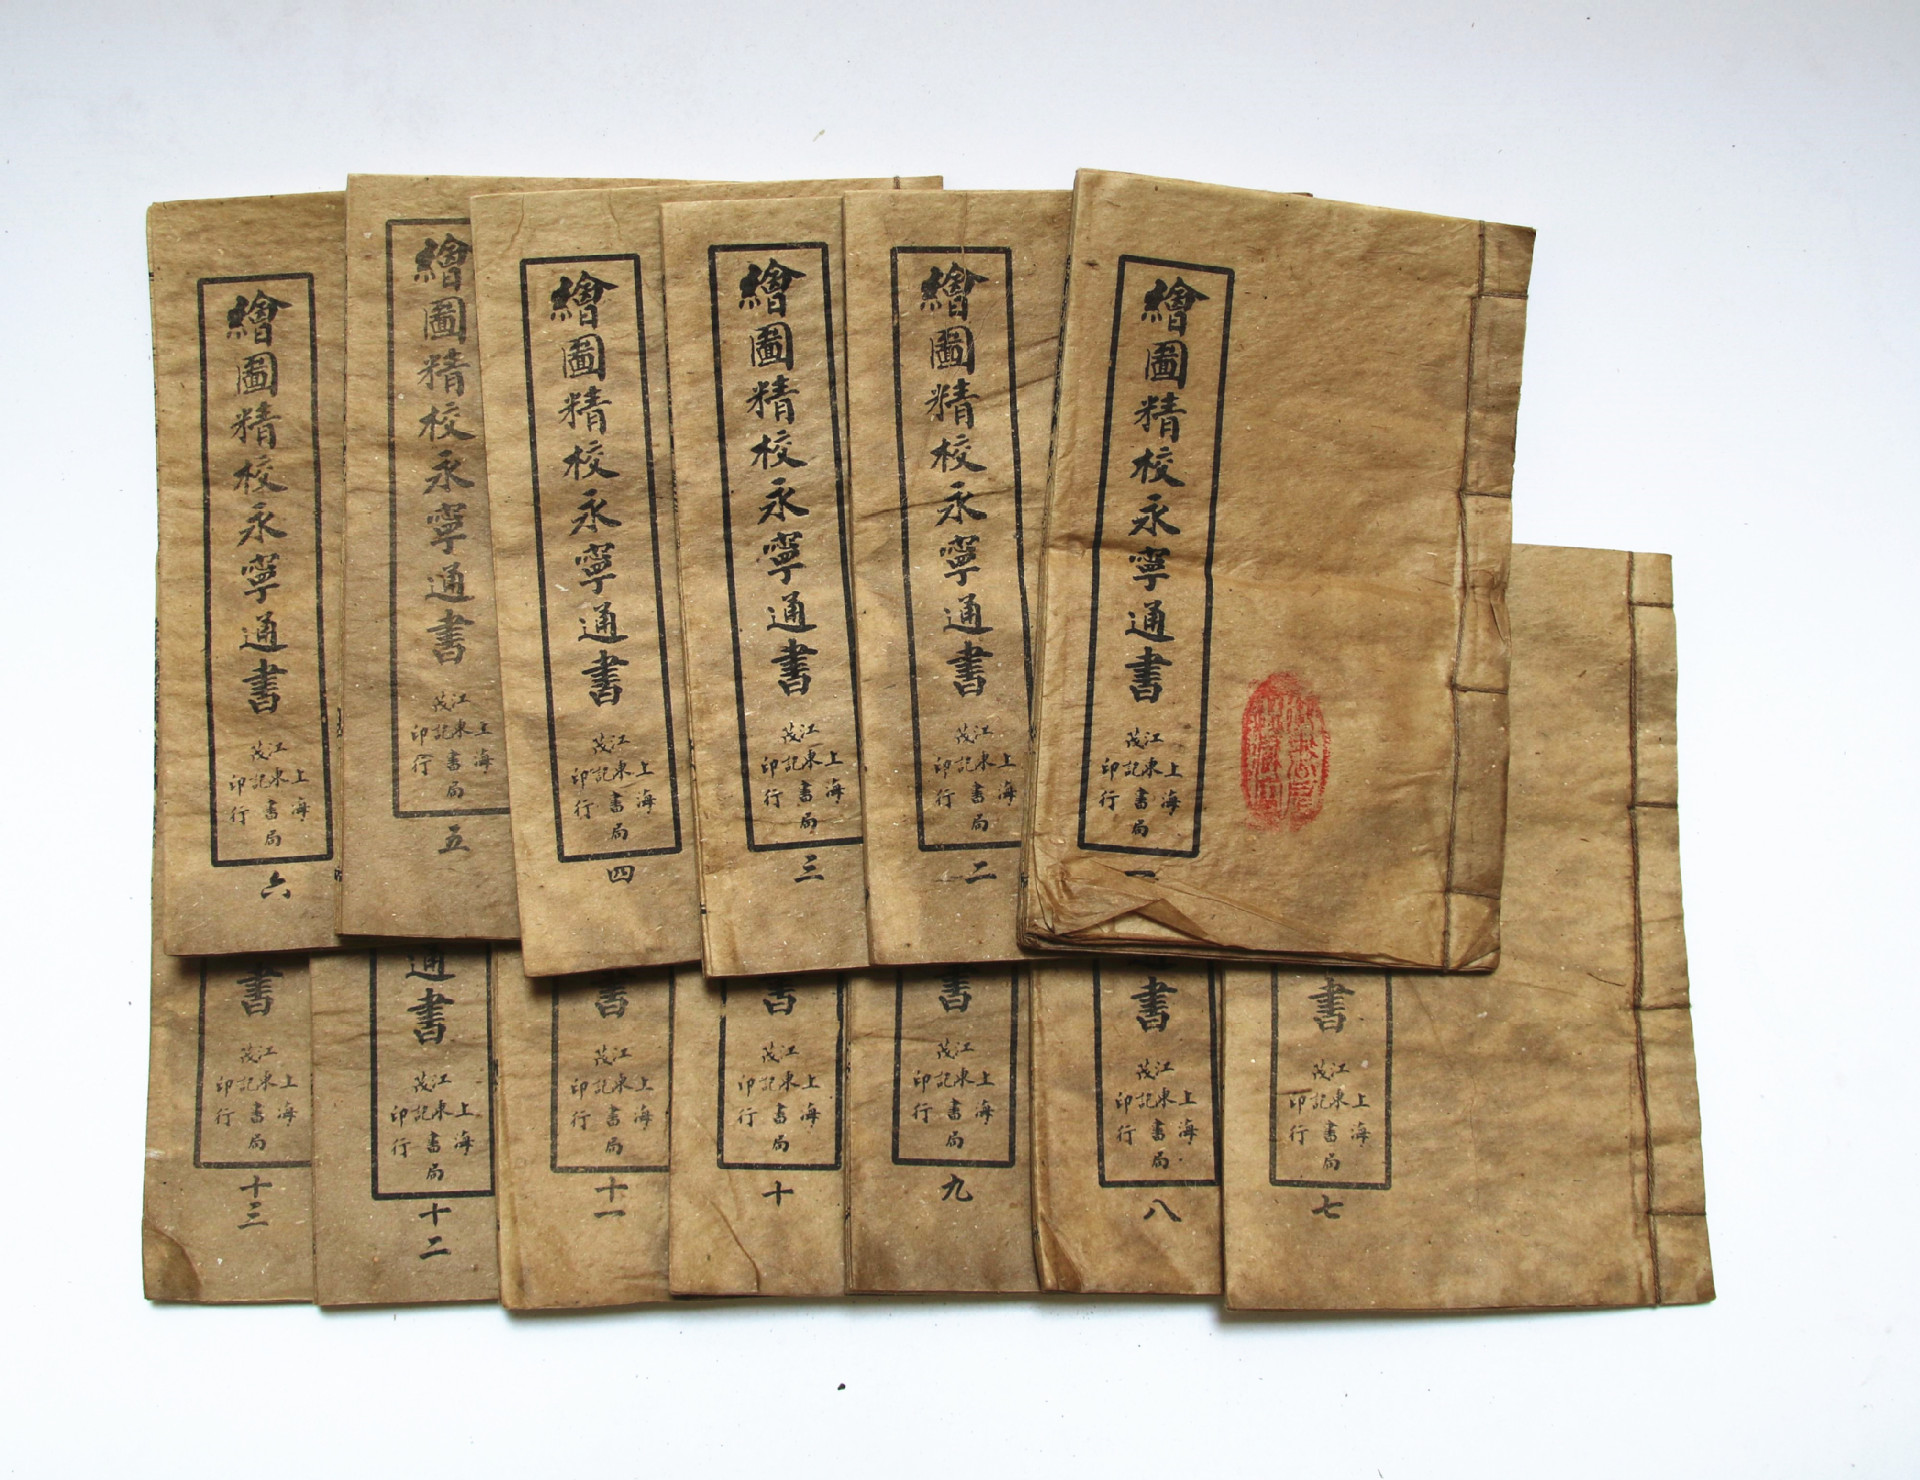 繪圖精校永寧通書
上海
江東書局
茂記
印行
一
繪圖精校永寧通書
上海
江東書局
茂記
印行
二
繪圖精校永寧通書
上海
江東書局
茂記
印行
三
繪圖精校永寧通書
上海
江東書局
茂記
印行
四
繪圖精校永寧通書
上海
江東書局
茂記
印行
五
繪圖精校永寧通書
上海
江東書局
茂記
印行
六
書
上海
江東書局
茂記
印行
七
書
上海
江東書局
茂記
印行
八
書
上海
江東書局
茂記
印行
九
書
上海
江東書局
茂記
印行
十
書
上海
江東書局
茂記
印行
十一
通書
上海
江東書局
茂記
印行
十二
書
上海
江東書局
茂記
印行
十三